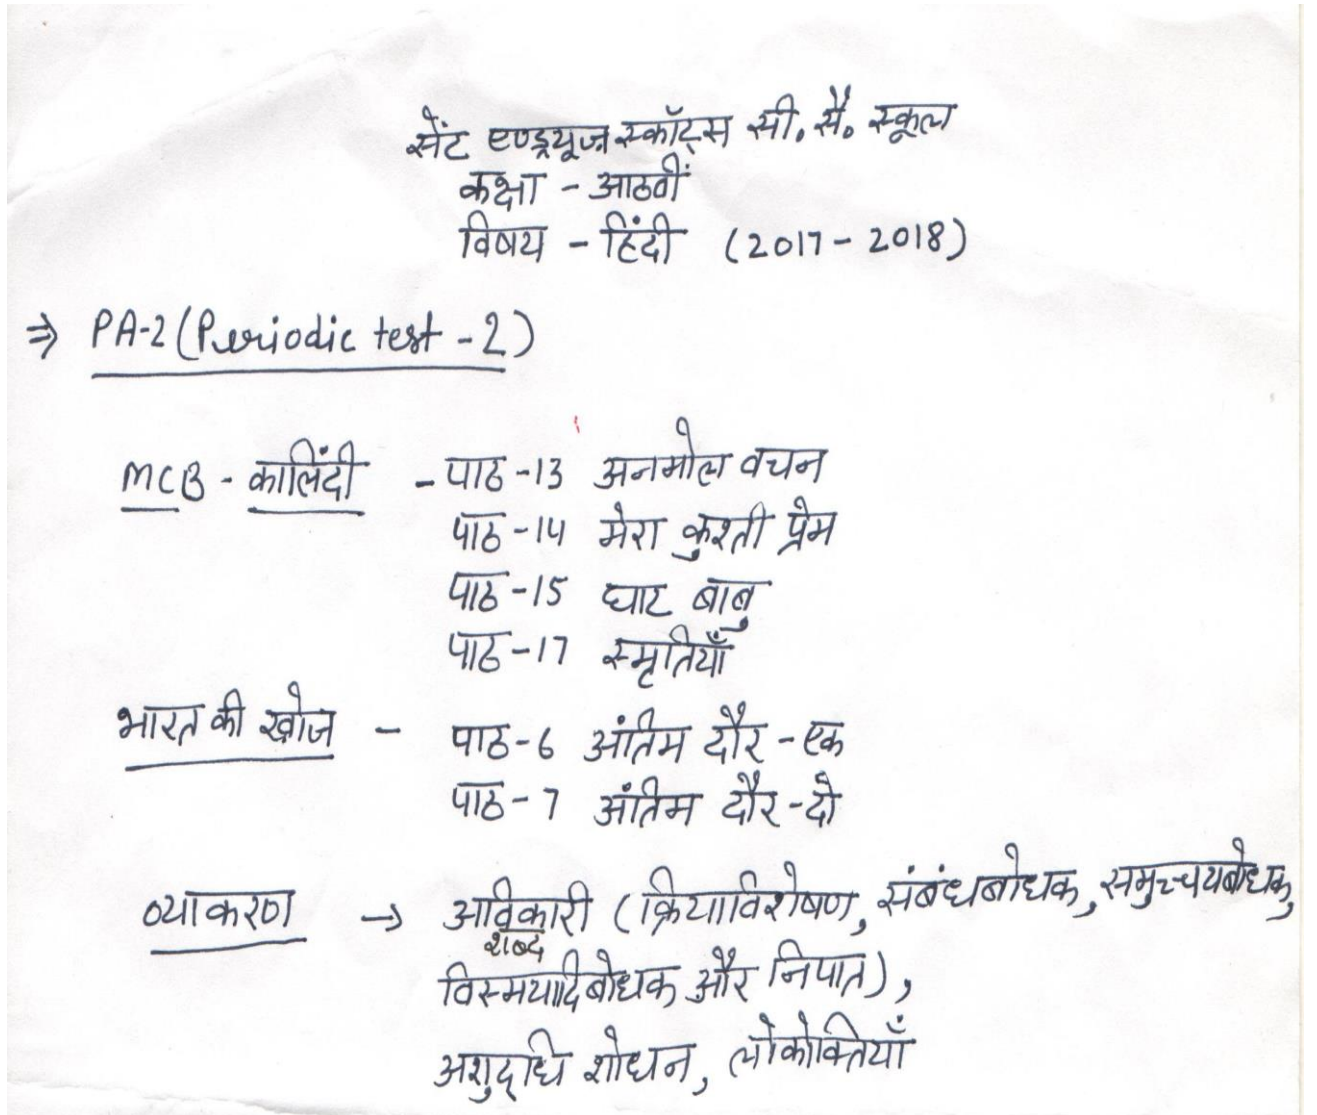 सेंट एण्ड्रयूज स्कॉट्स सी. सै. स्कूल
कक्षा - आठवीं
विषय - हिंदी (2017 - 2018)
⇒ PA-2 (Periodic test - 2)
MCB - कालिंदी - पाठ -13 अनमोल वचन
पाठ -14 मेरा कुश्ती प्रेम
पाठ -15 घाट बाबु
पाठ -17 स्मृतियाँ
भारत की खोज - पाठ-6 अंतिम दौर - एक
पाठ - 7 अंतिम दौर - दो
व्याकरण → अविकारी (क्रियाविशेषण, संबंधबोधक, समुच्चयबोधक,
शब्द
विस्मयादिबोधक और निपात),
अशुद्धि शोधन, लोकोक्तियाँ